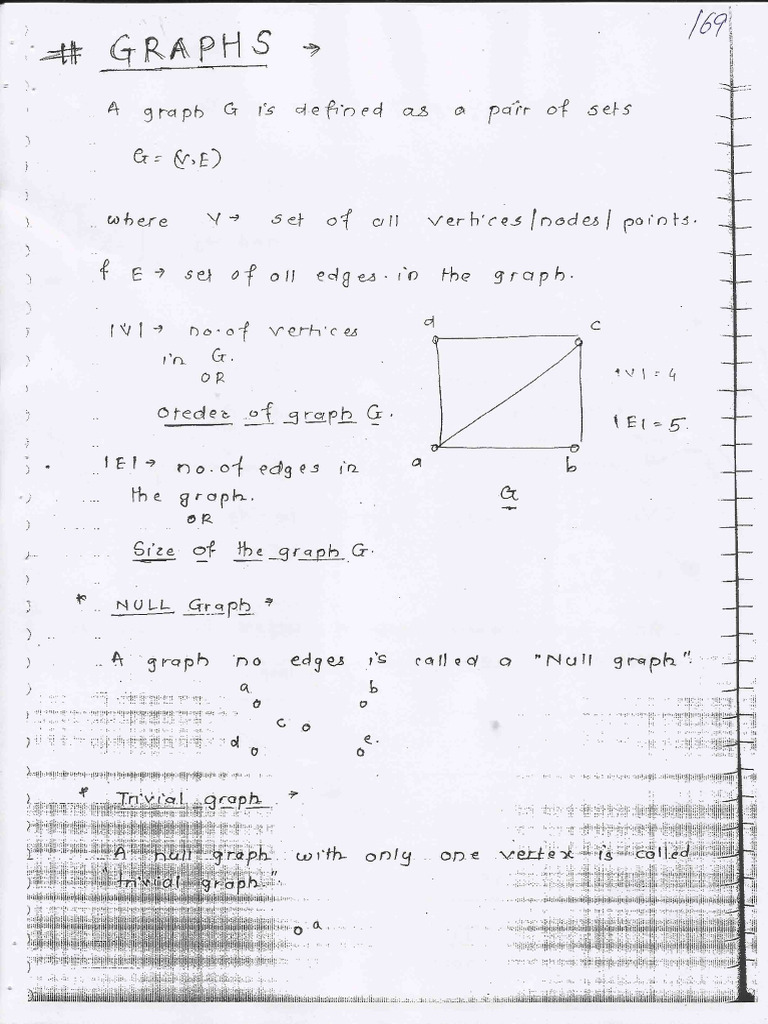 169
# GRAPHS →
A graph G is defined as a pair of sets
G = (V, E)
where V → set of all vertices/nodes/points.
f E → set of all edges. in the graph.
|V| → no. of vertices
in G.
OR
Oreder of graph G.
d c
|V| = 4
|E| = 5.
a b
G
|E| → no. of edges in
the graph.
OR
Size of the graph G.
* NULL Graph →
A graph no edges is called a "Null graph".
a b
c
d e.
* Trivial graph →
A null graph with only one vertex is called
"trivial graph."
a